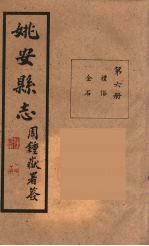 姚安縣志
周鍾嶽署簽
第六册
禮俗
金石